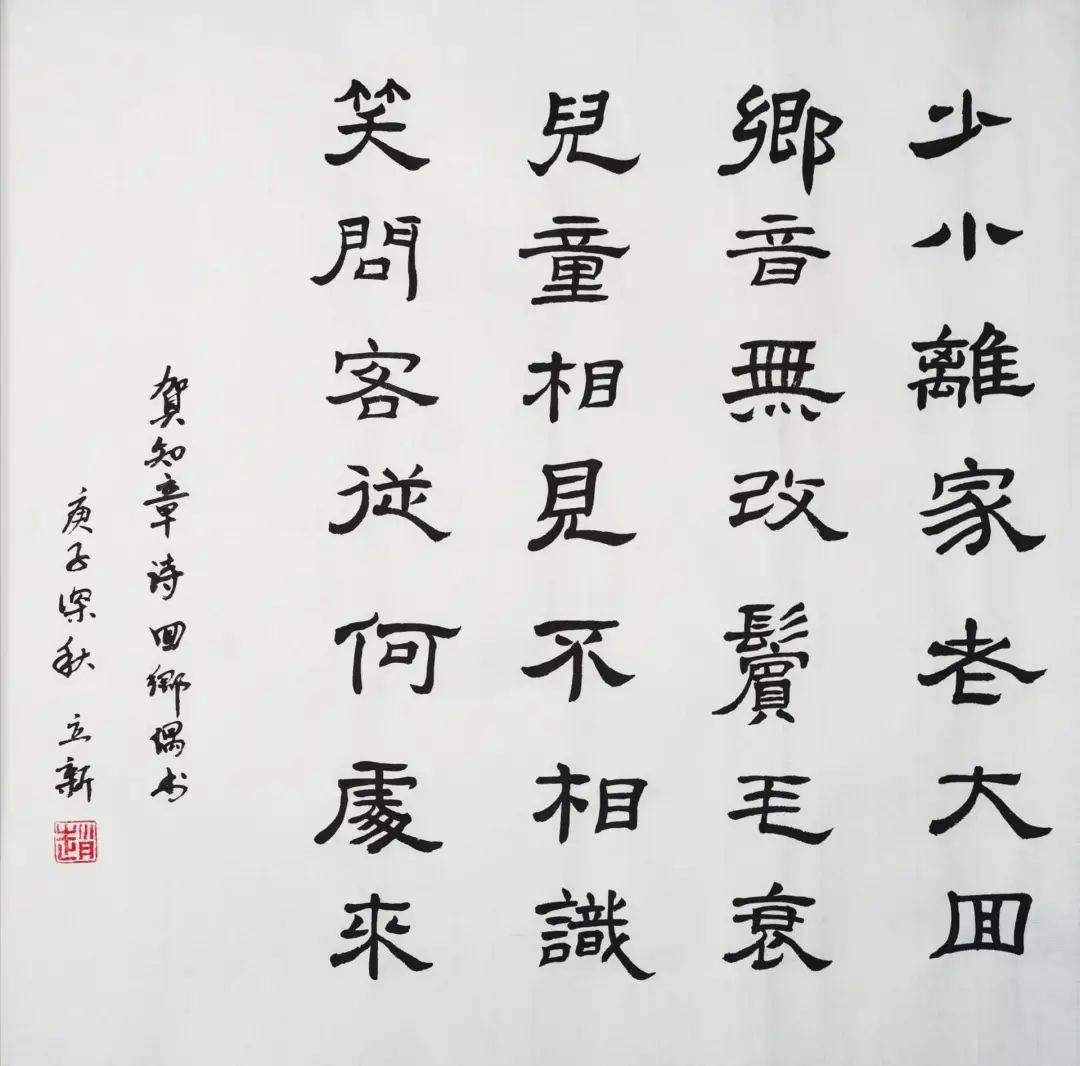 少小離家老大囬
鄉音無改鬢毛衰
兒童相見不相識
笑問客従何處來
賀知章诗囬鄉偶书
庚子深秋 立新
趙